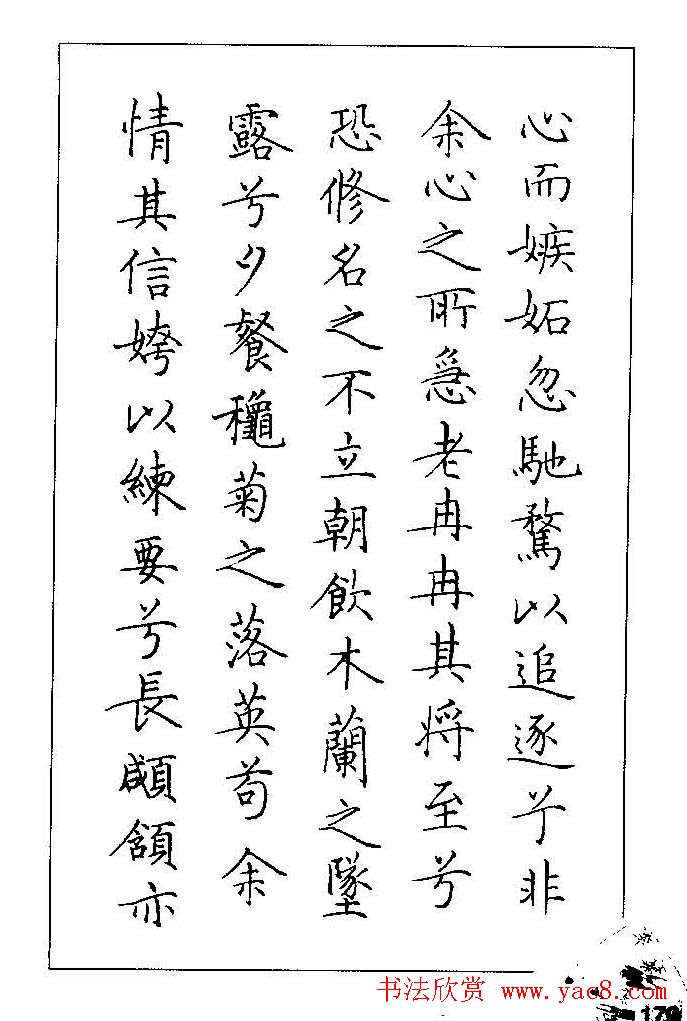 心而嫉妬忽馳騖以追逐兮非
余心之所急老冉冉其將至兮
恐修名之不立朝飲木蘭之墜
露兮夕餐穐菊之落英苟余
情其信姱以練要兮長顑頷亦
书法欣赏 www.yac8.com
179